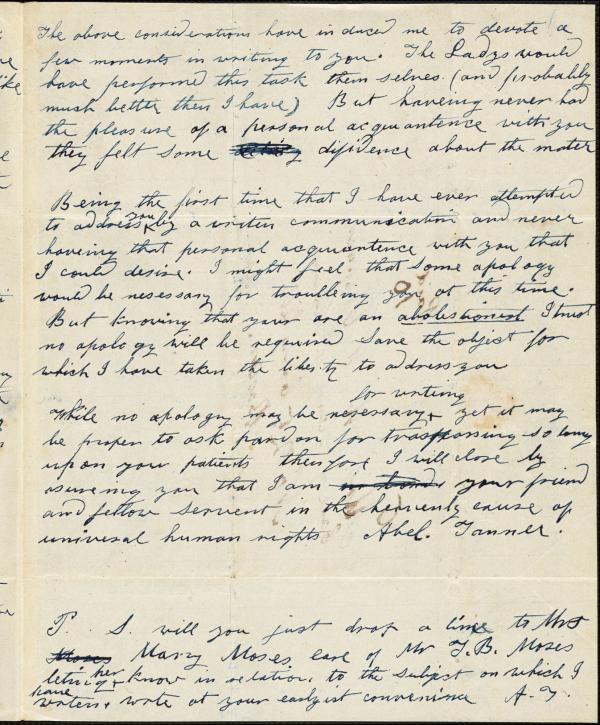 The above considerations have induced me to devote a
few moments in writing to you. The Ladys would
have performed this task them selves (and probably
much better then I have) But haveing never had
the pleasure of a personal acquantence with you
they felt some difidence about the mater
Being the first time that I have ever attempted
to address you by a writen communication and never
haveing that personal acquantence with you that
I could desire. I might feel that some apology
would be nesessary for troubleing you at this time.
But knowing that your are an abolestionest I trust
no apology will be required save the object for
which I have taken the liberty to address you
for writing
While no apology may be nesessary yet it may
be proper to ask pardon for trasspassing so long
upon your patients therefore I will close by
asureing you that I am your friend
and fellow servent in the heavenly cause of
universal human rights Abel. Tanner.
P. S. will you just drop a line to Mrs
Moses Mary Moses care of Mr T. B. Moses
leting her know in relation to the subject on which I
have writen, wrote at your earlyist convenience A. T.